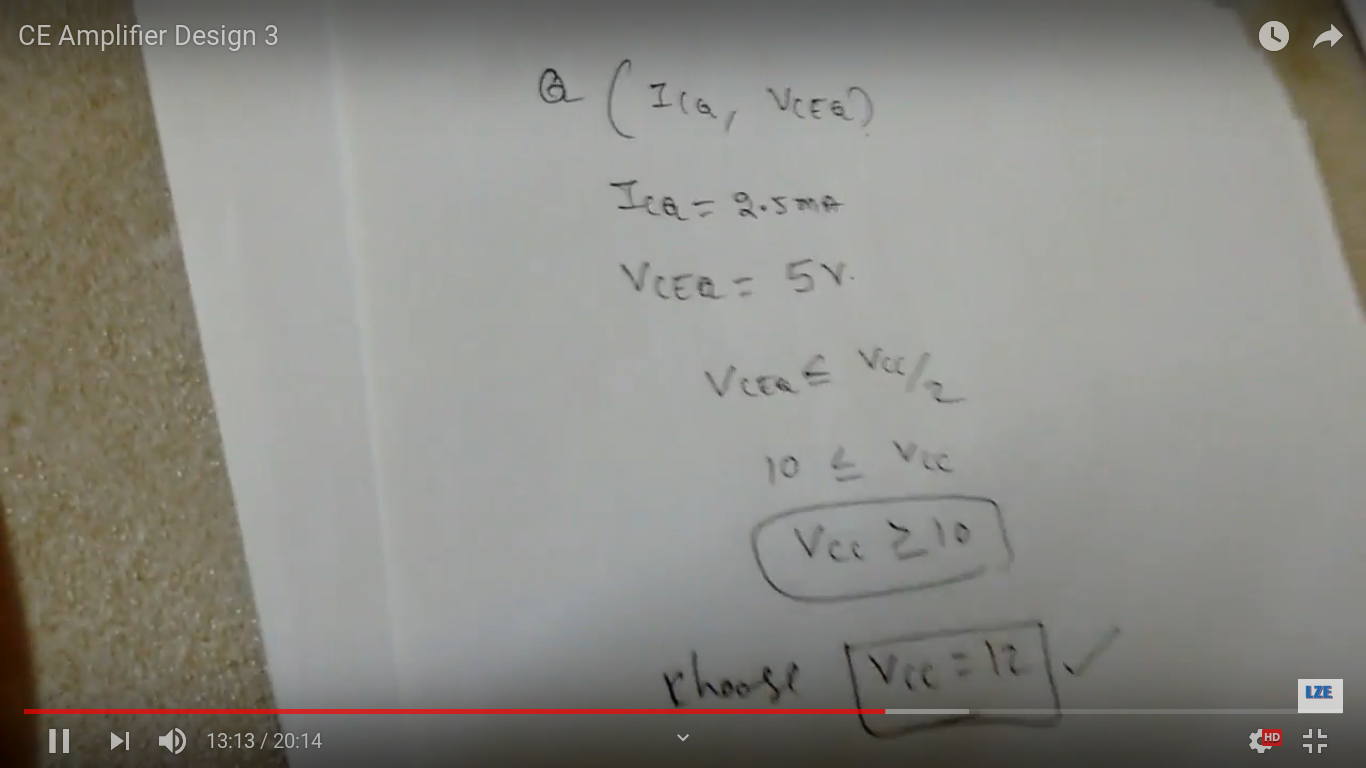 CE Amplifier Design 3
Q (ICQ, VCEQ)
ICQ = 2.5mA
VCEQ = 5V.
VCEQ ≤ VCC/2
10 ≤ VCC
VCC ≥ 10
choose VCC = 12 ✓
LZE
13:13 / 20:14
HD